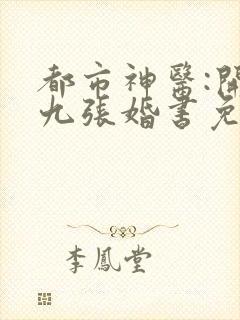 都市神醫:開
九張婚書免
李鳳堂